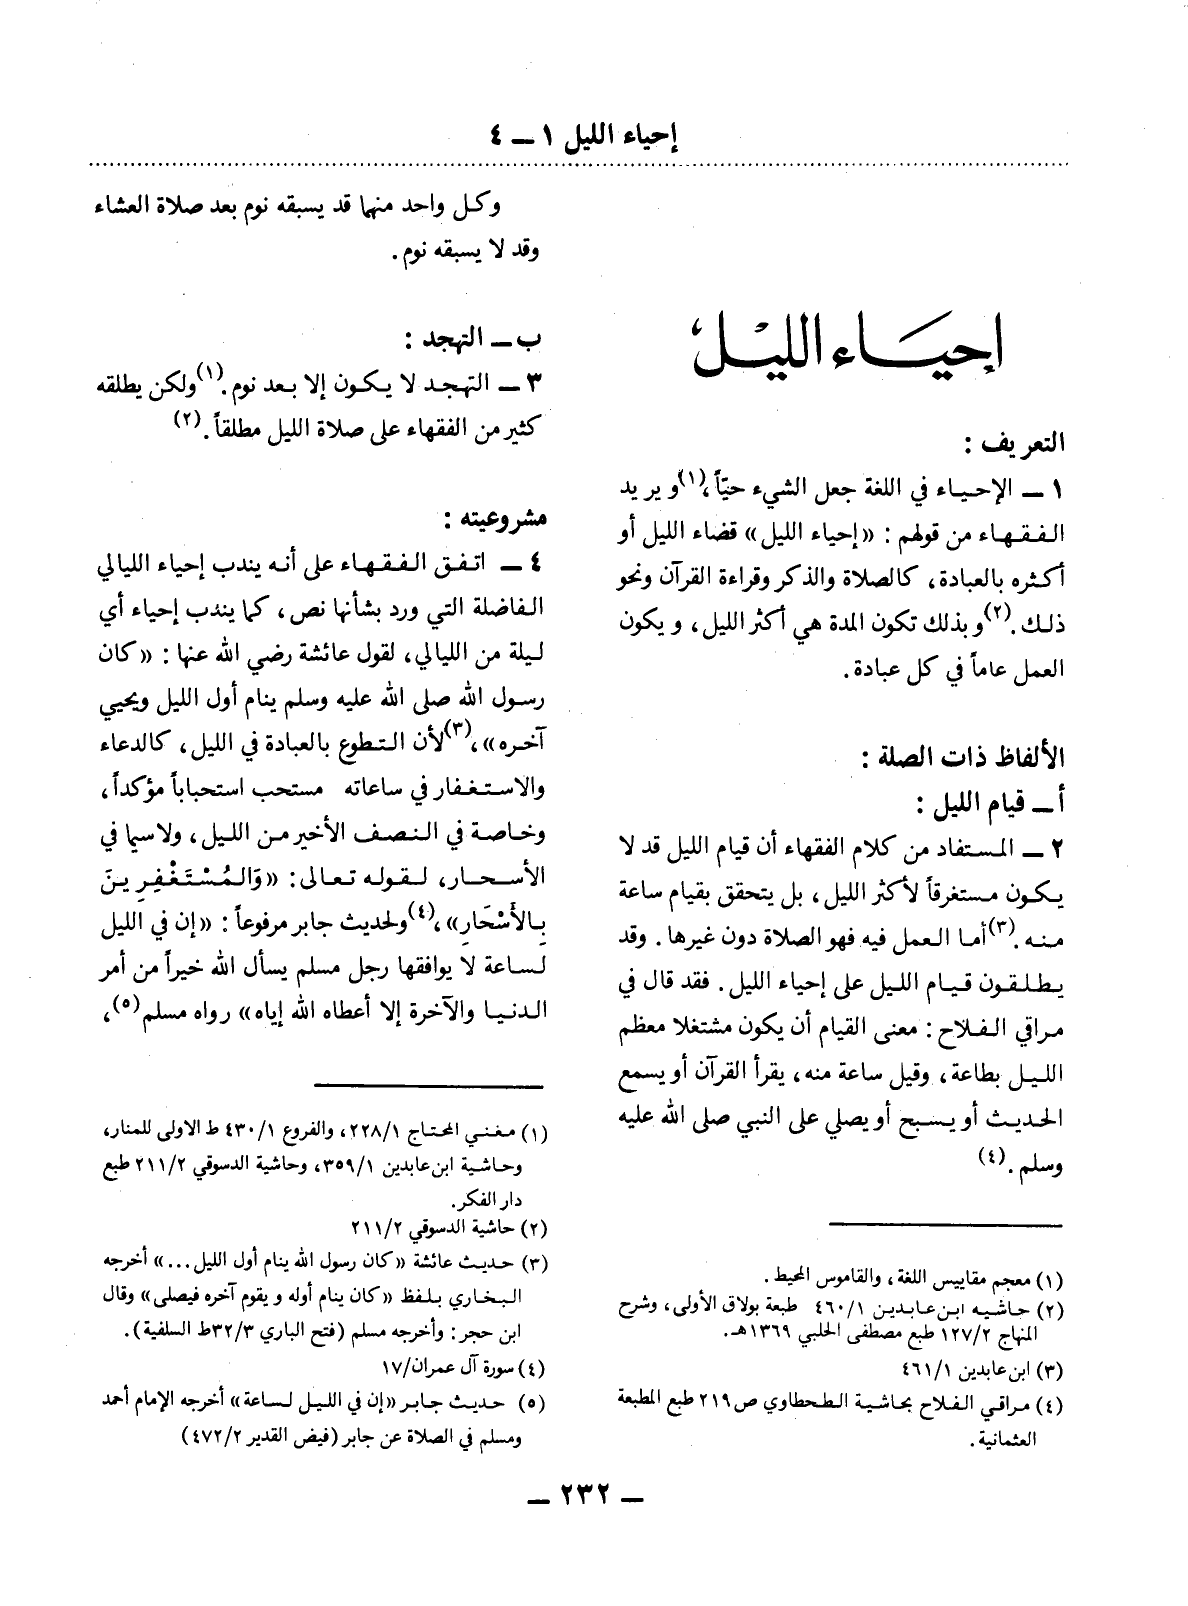 إحياء الليل ١ ــ ٤
إحياء الليل
التعريف :
١ ــ الإحياء في اللغة جعل الشيء حيّاً ،(١) ويريد
الفقهاء من قولهم : «إحياء الليل» قضاء الليل أو
أكثره بالعبادة ، كالصلاة والذكر وقراءة القرآن ونحو
ذلك .(٢) وبذلك تكون المدة هي أكثر الليل ، ويكون
العمل عاماً في كل عبادة .
الألفاظ ذات الصلة :
أ ــ قيام الليل :
٢ ــ المستفاد من كلام الفقهاء أن قيام الليل قد لا
يكون مستغرقاً لأكثر الليل ، بل يتحقق بقيام ساعة
منه .(٣) أما العمل فيه فهو الصلاة دون غيرها . وقد
يطلقون قيام الليل على إحياء الليل . فقد قال في
مراقي الفلاح : معنى القيام أن يكون مشتغلا معظم
الليل بطاعة ، وقيل ساعة منه ، يقرأ القرآن أو يسمع
الحديث أو يسبح أو يصلي على النبي صلى الله عليه
وسلم .(٤)
(١) معجم مقاييس اللغة ، والقاموس المحيط .
(٢) حاشيه ابن عابدين ٤٦٠/١ طبعة بولاق الأولى ، وشرح
المنهاج ١٢٧/٢ طبع مصطفى الحلبي ١٣٦٩هـ .
(٣) ابن عابدين ٤٦١/١
(٤) مراقي الفلاح بحاشية الطحطاوي ص٢١٩ طبع المطبعة
العثمانية .
وكل واحد منهما قد يسبقه نوم بعد صلاة العشاء
وقد لا يسبقه نوم .
ب ــ التهجد :
٣ ــ التهجد لا يكون إلا بعد نوم .(١) ولكن يطلقه
كثير من الفقهاء على صلاة الليل مطلقاً .(٢)
مشروعيته :
٤ ــ اتفق الفقهاء على أنه يندب إحياء الليالي
الفاضلة التي ورد بشأنها نص ، كما يندب إحياء أي
ليلة من الليالي ، لقول عائشة رضي الله عنها : «كان
رسول الله صلى الله عليه وسلم ينام أول الليل ويحيي
آخره» ،(٣) لأن التطوع بالعبادة في الليل ، كالدعاء
والاستغفار في ساعاته مستحب استحباباً مؤكداً ،
وخاصة في النصف الأخير من الليل ، ولاسيما في
الأسحار ، لقوله تعالى : «وَالمُسْتَغْفِرِينَ
بِالأَسْحَارِ» ،(٤) ولحديث جابر مرفوعاً : «إن في الليل
لساعة لا يوافقها رجل مسلم يسأل الله خيراً من أمر
الدنيا والآخرة إلا أعطاه الله إياه» رواه مسلم (٥) ،
(١) مغني المحتاج ٢٢٨/١ ، والفروع ٤٣٠/١ ط الاولى للمنار ،
وحاشية ابن عابدين ٣٥٩/١ ، وحاشية الدسوقي ٢١١/٢ طبع
دار الفكر .
(٢) حاشية الدسوقي ٢١١/٢
(٣) حديث عائشة «كان رسول الله ينام أول الليل ...» أخرجه
البخاري بلفظ «كان ينام أوله ويقوم آخره فيصلى» وقال
ابن حجر : وأخرجه مسلم (فتح الباري ٣٢/٣ط السلفية) .
(٤) سورة آل عمران/١٧
(٥) حديث جابر «إن في الليل لساعة» أخرجه الإمام أحمد
ومسلم في الصلاة عن جابر (فيض القدير ٤٧٢/٢)
ــ ٢٣٢ ــ